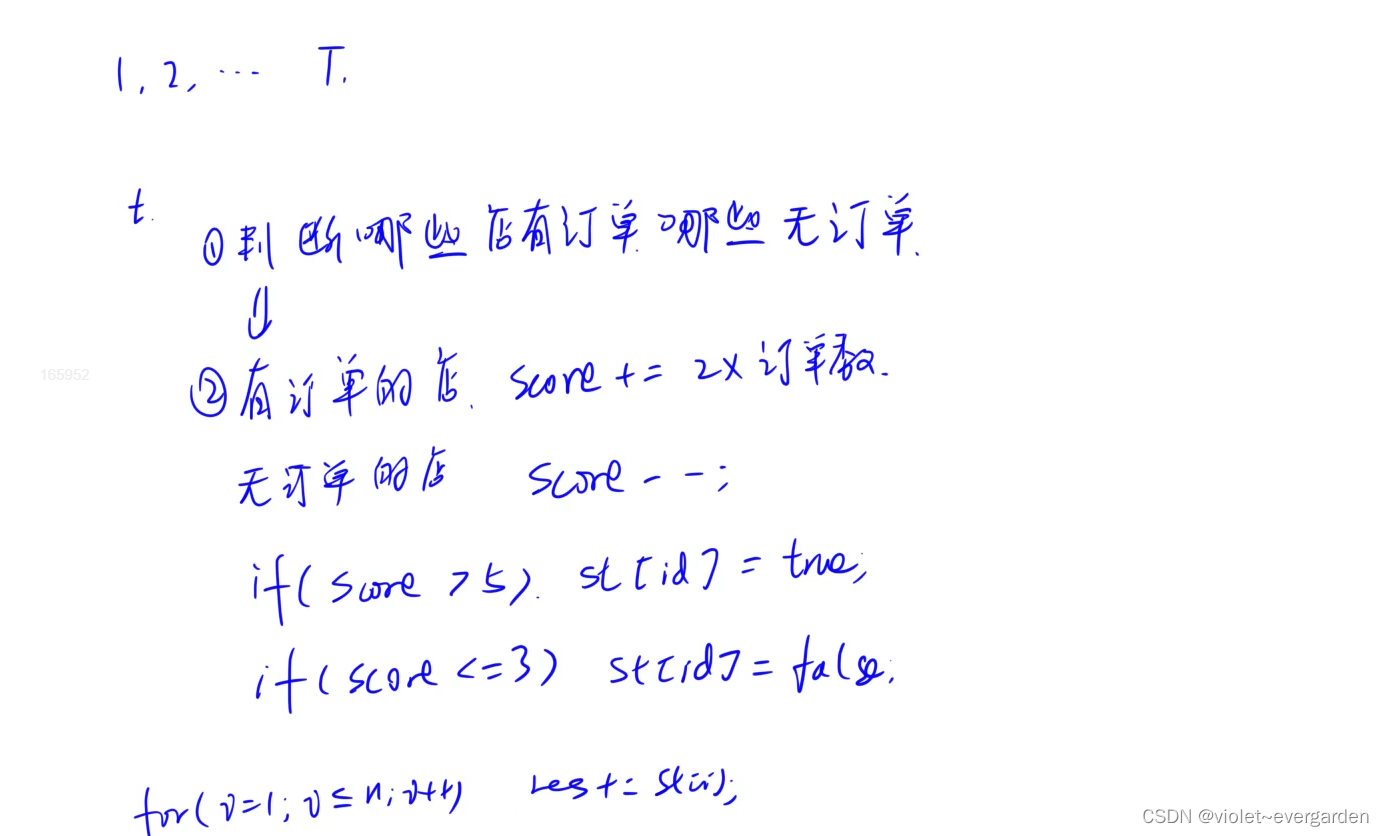 1, 2, ... T.
t.
①判断哪些店有订单 哪些无订单.
②有订单的店. score += 2× 订单数.
165952
无订单的店 score --;
if( score >5). st[id] = true;
if( score <=3) st[id] = false;
for( i=1; i≤n; i++) res += st[i];
CSDN @violet~evergarden